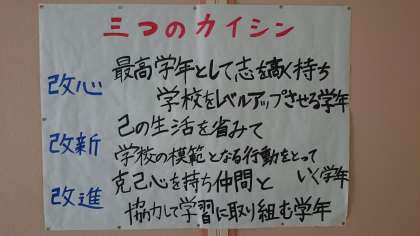 三つのカイシン
改心 最高学年として志を高く持ち
学校をレベルアップさせる学年
改新 己の生活を省みて
学校の模範となる行動をとって
いく学年
改進 克己心を持ち仲間と
協力して学習に取り組む学年